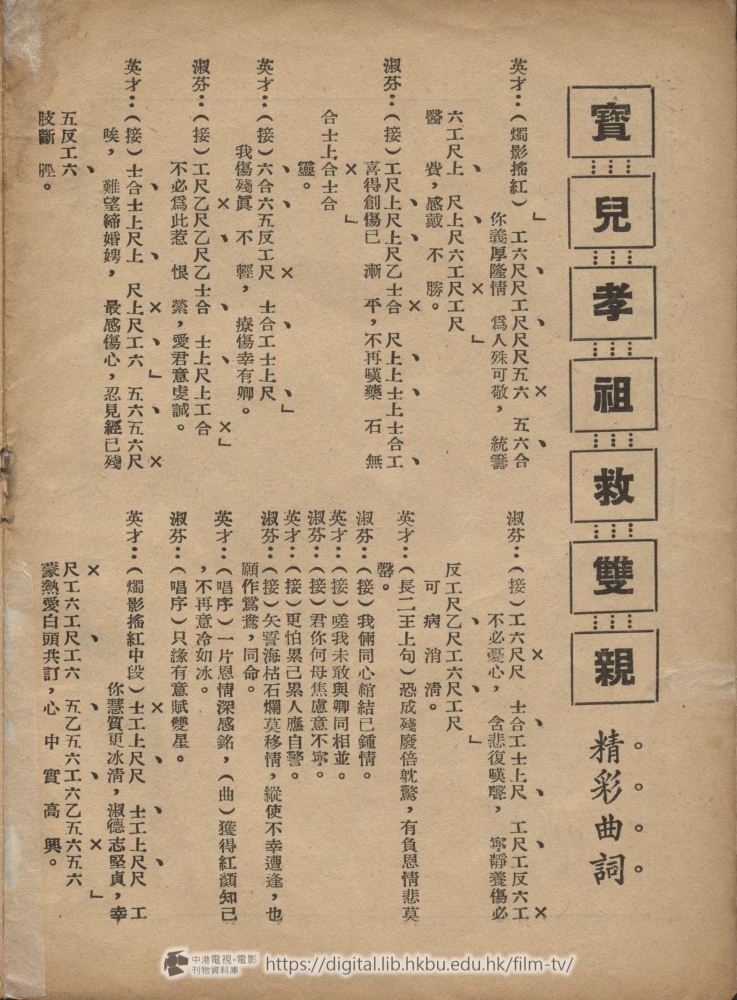 寶兒孝祖救雙親
精彩曲詞
英才：（燭影搖紅）工六尺尺工尺尺尺五六 五六合
你義厚隆情 爲人殊可敬，統籌
六工尺上 尺上尺六工尺工尺
醫 費，感戴 不 勝。
淑芬：（接）工尺上尺上尺乙士合 尺上上士上士合工
喜得創傷已 漸 平，不再嘆藥 石 無
合士上合士合
靈。
英才：（接）六合六五反工尺 士合工士上尺
我傷殘眞 不 輕，療傷幸有卿。
淑芬：（接）工尺乙尺乙尺乙士合 士上尺上工合
不必爲此惹 恨 縈，愛君意虔誠。
英才：（接）士合士上尺上 尺上尺工六 五六五六尺
唉，難望締婚娉，最感傷心，忍見經已殘
五反工六
肢斷 脛。
淑芬：（接）工六尺尺 士合工士上尺 工尺工反六工
不必憂心，含悲復嘆聲，寧靜養傷必
反工尺乙尺工六尺工尺
可 病 消 淸。
英才：（長二王上句）恐成殘廢倍躭驚，有負恩情悲莫
罄。
淑芬：（接）我倆同心綰結已鍾情。
英才：（接）嗟我未敢與卿同相並。
淑芬：（接）君你何毋焦慮意不寧。
英才：（接）更怕累己累人應自警。
淑芬：（接）矢誓海枯石爛莫移情，縱使不幸遭逢，也
願作鴛鴦，同命。
英才：（唱序）一片恩情深感銘，（曲）獲得紅顏知己
，不再意冷如冰。
淑芬：（唱序）只緣有意賦雙星。
英才：（燭影搖紅中段）士工上尺尺 士工上尺尺 工
你慧質更冰淸，淑德志堅貞，幸
尺工六工尺工六 五乙五六工六乙五六五六
蒙熱愛白頭共訂，心 中 實 高 興。
中港電視·電影
刊物資料庫
https://digital.lib.hkbu.edu.hk/film-tv/